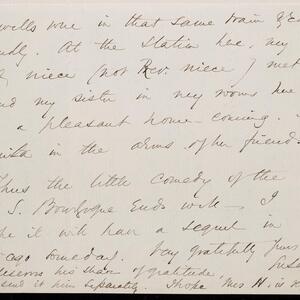 wells were in that same train &
At the station here, my
niece (not Rev. niece) met
my sister in my rooms here
a pleasant home-coming.
in the arms of her friends
Thus the little comedy of the
S. Bourgogne Ends with — I
it will have a sequel in
ago someday. Very gratefully Yours
his share of gratitude.
send it him separately. I hope Mrs H. is